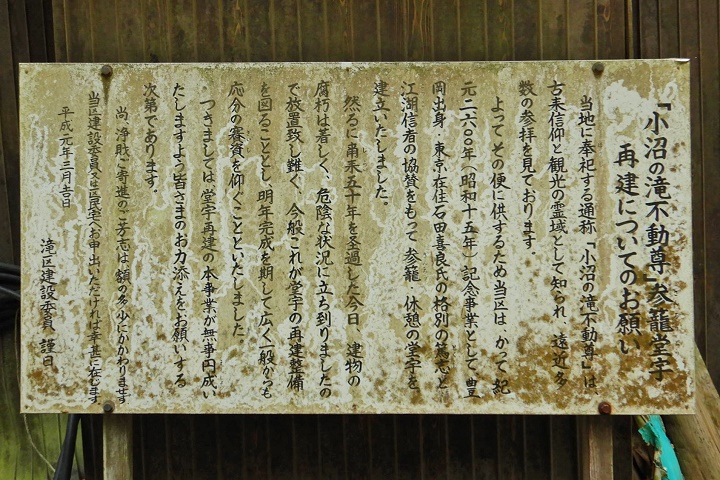 「小沼の滝不動尊」参籠堂宇
再建についてのお願い
当地に奉祀する通称「小沼の滝不動尊」は、
古来信仰と観光の霊域として知られ、遠近多
数の参拝を見ております。
よって その便に供するため当区は、かって 紀
元二六〇〇年（昭和十五年）記念事業として、豊
岡出身・東京在住石田喜良氏の格別の篤志と
江湖信者の協賛をもって 参籠、休憩の堂宇を
建立いたしました。
然るに 爾来五十年を経過した今日、建物の
腐朽は著しく、危険な状況に立ち到りましたの
で放置致し難く、今般これが堂宇の再建整備
を図ることとし、明年完成を期して広く一般からも
応分の賽資を仰ぐことといたしました。
つきましては 堂宇再建の本事業が無事円成い
たしますよう皆さまのお力添えをお願いする
次第であります。
尚 浄財ご寄進のご芳志は額の多少にかかわりませず
当区建設委員又は区民宅へお申し出いただければ幸甚に存じます
平成元年三月吉日
滝区建設委員 謹白